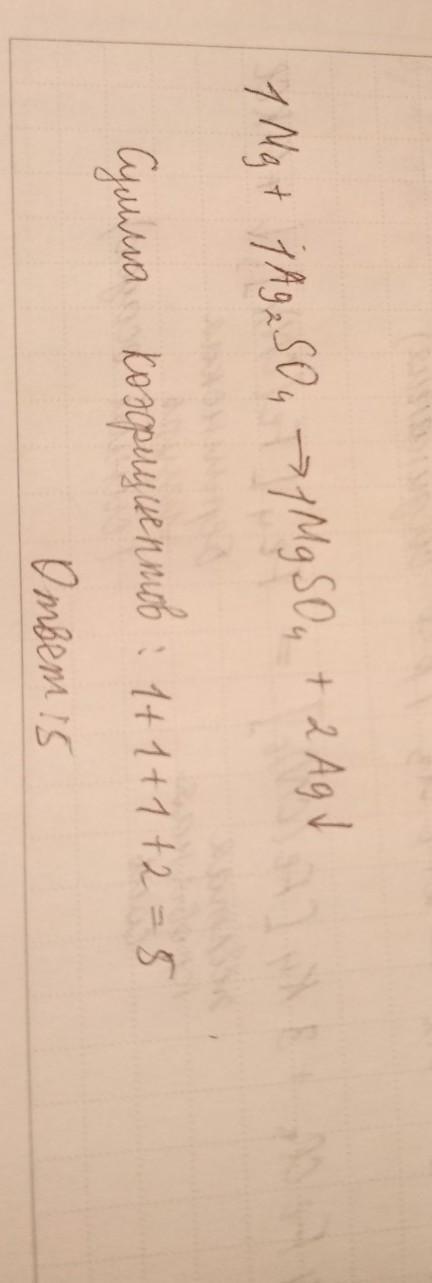 1Mg + 1Ag₂SO₄ → 1MgSO₄ + 2Ag↓
Сумма коэфициентов: 1+1+1+2=5
Ответ: 5